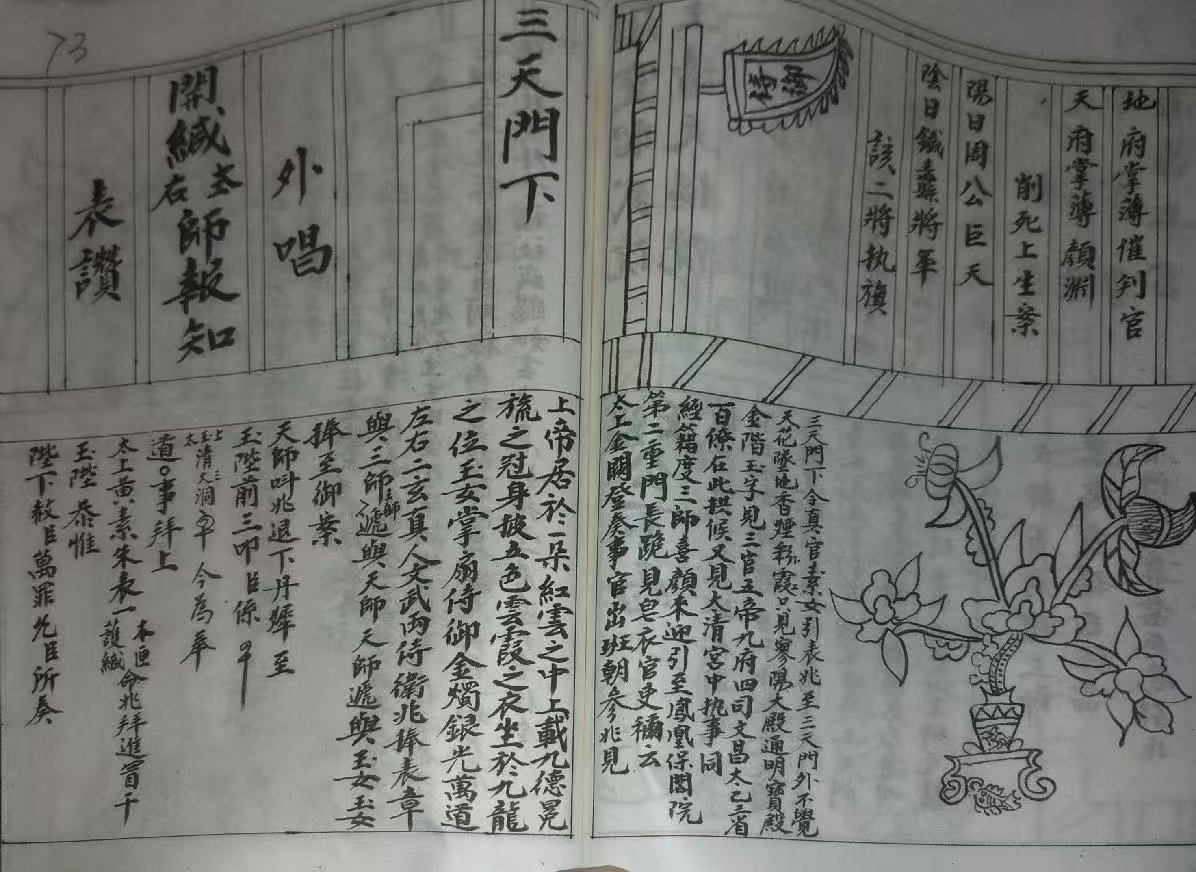 地府掌薄催判官
天府掌薄顏淵
削死上生案
陽日周公巨天
陰日鐵纛將軍
該二將執旗
三天門下
外唱
開緘
右
師報知
表讚
三天門下今真官素女引表兆至三天門外不覺
天花墜地香煙彩霞只見寥陽大殿通明寶殿
金階玉字見三官五帝九府四司文昌太乙三省
百僚在此拱候又見太清宮中执事同
經籍度三師喜顏來迎引至鳳凰保閣院
第二重門長跪見皂衣官吏稱云
太上金闕登奏事官出班朝參兆見
上帝居於一朵紅雲之中上載九德冕
旒之冠身披五色雲霞之衣坐於九龍
之位玉女掌扇侍御金燭銀光萬道
左右二玄真人文武两侍衛兆捧表章
與三師三師遞與天師天師遞與玉女玉女
捧至御案
天師叫兆退下丹墀至
玉陛前三叩臣係
上玉太清三洞 今為奉
道事拜上
太上黄素朱表一本匣護緘命兆拜進首千
玉陛恭惟
陛下赦臣萬罪允臣所奏
73